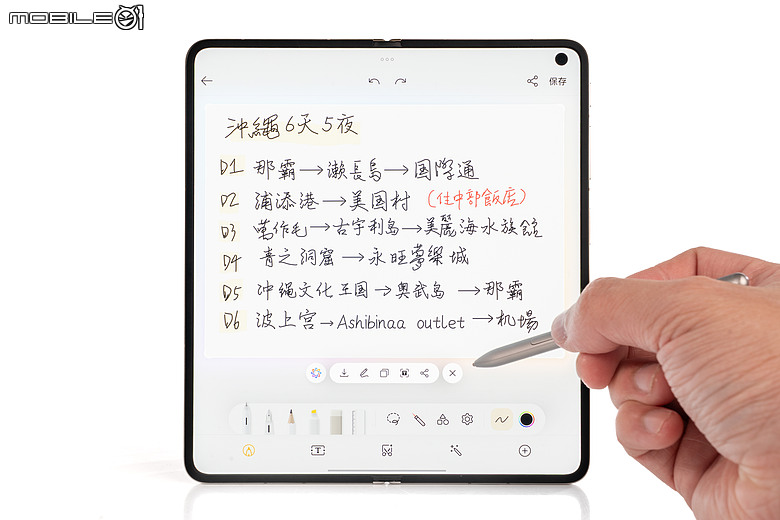 MOBILE01
保存
沖繩6天5夜
D1 那霸→瀨長島→国際通
D2 浦添港→美国村 (住中部飯店)
D3 萬作毛→古宇利島→美麗海水族館
D4 青之洞窟→永旺夢樂城
D5 沖绳文化王国→奥武島→那霸
D6 波上宮→Ashibinaa outlet→机場